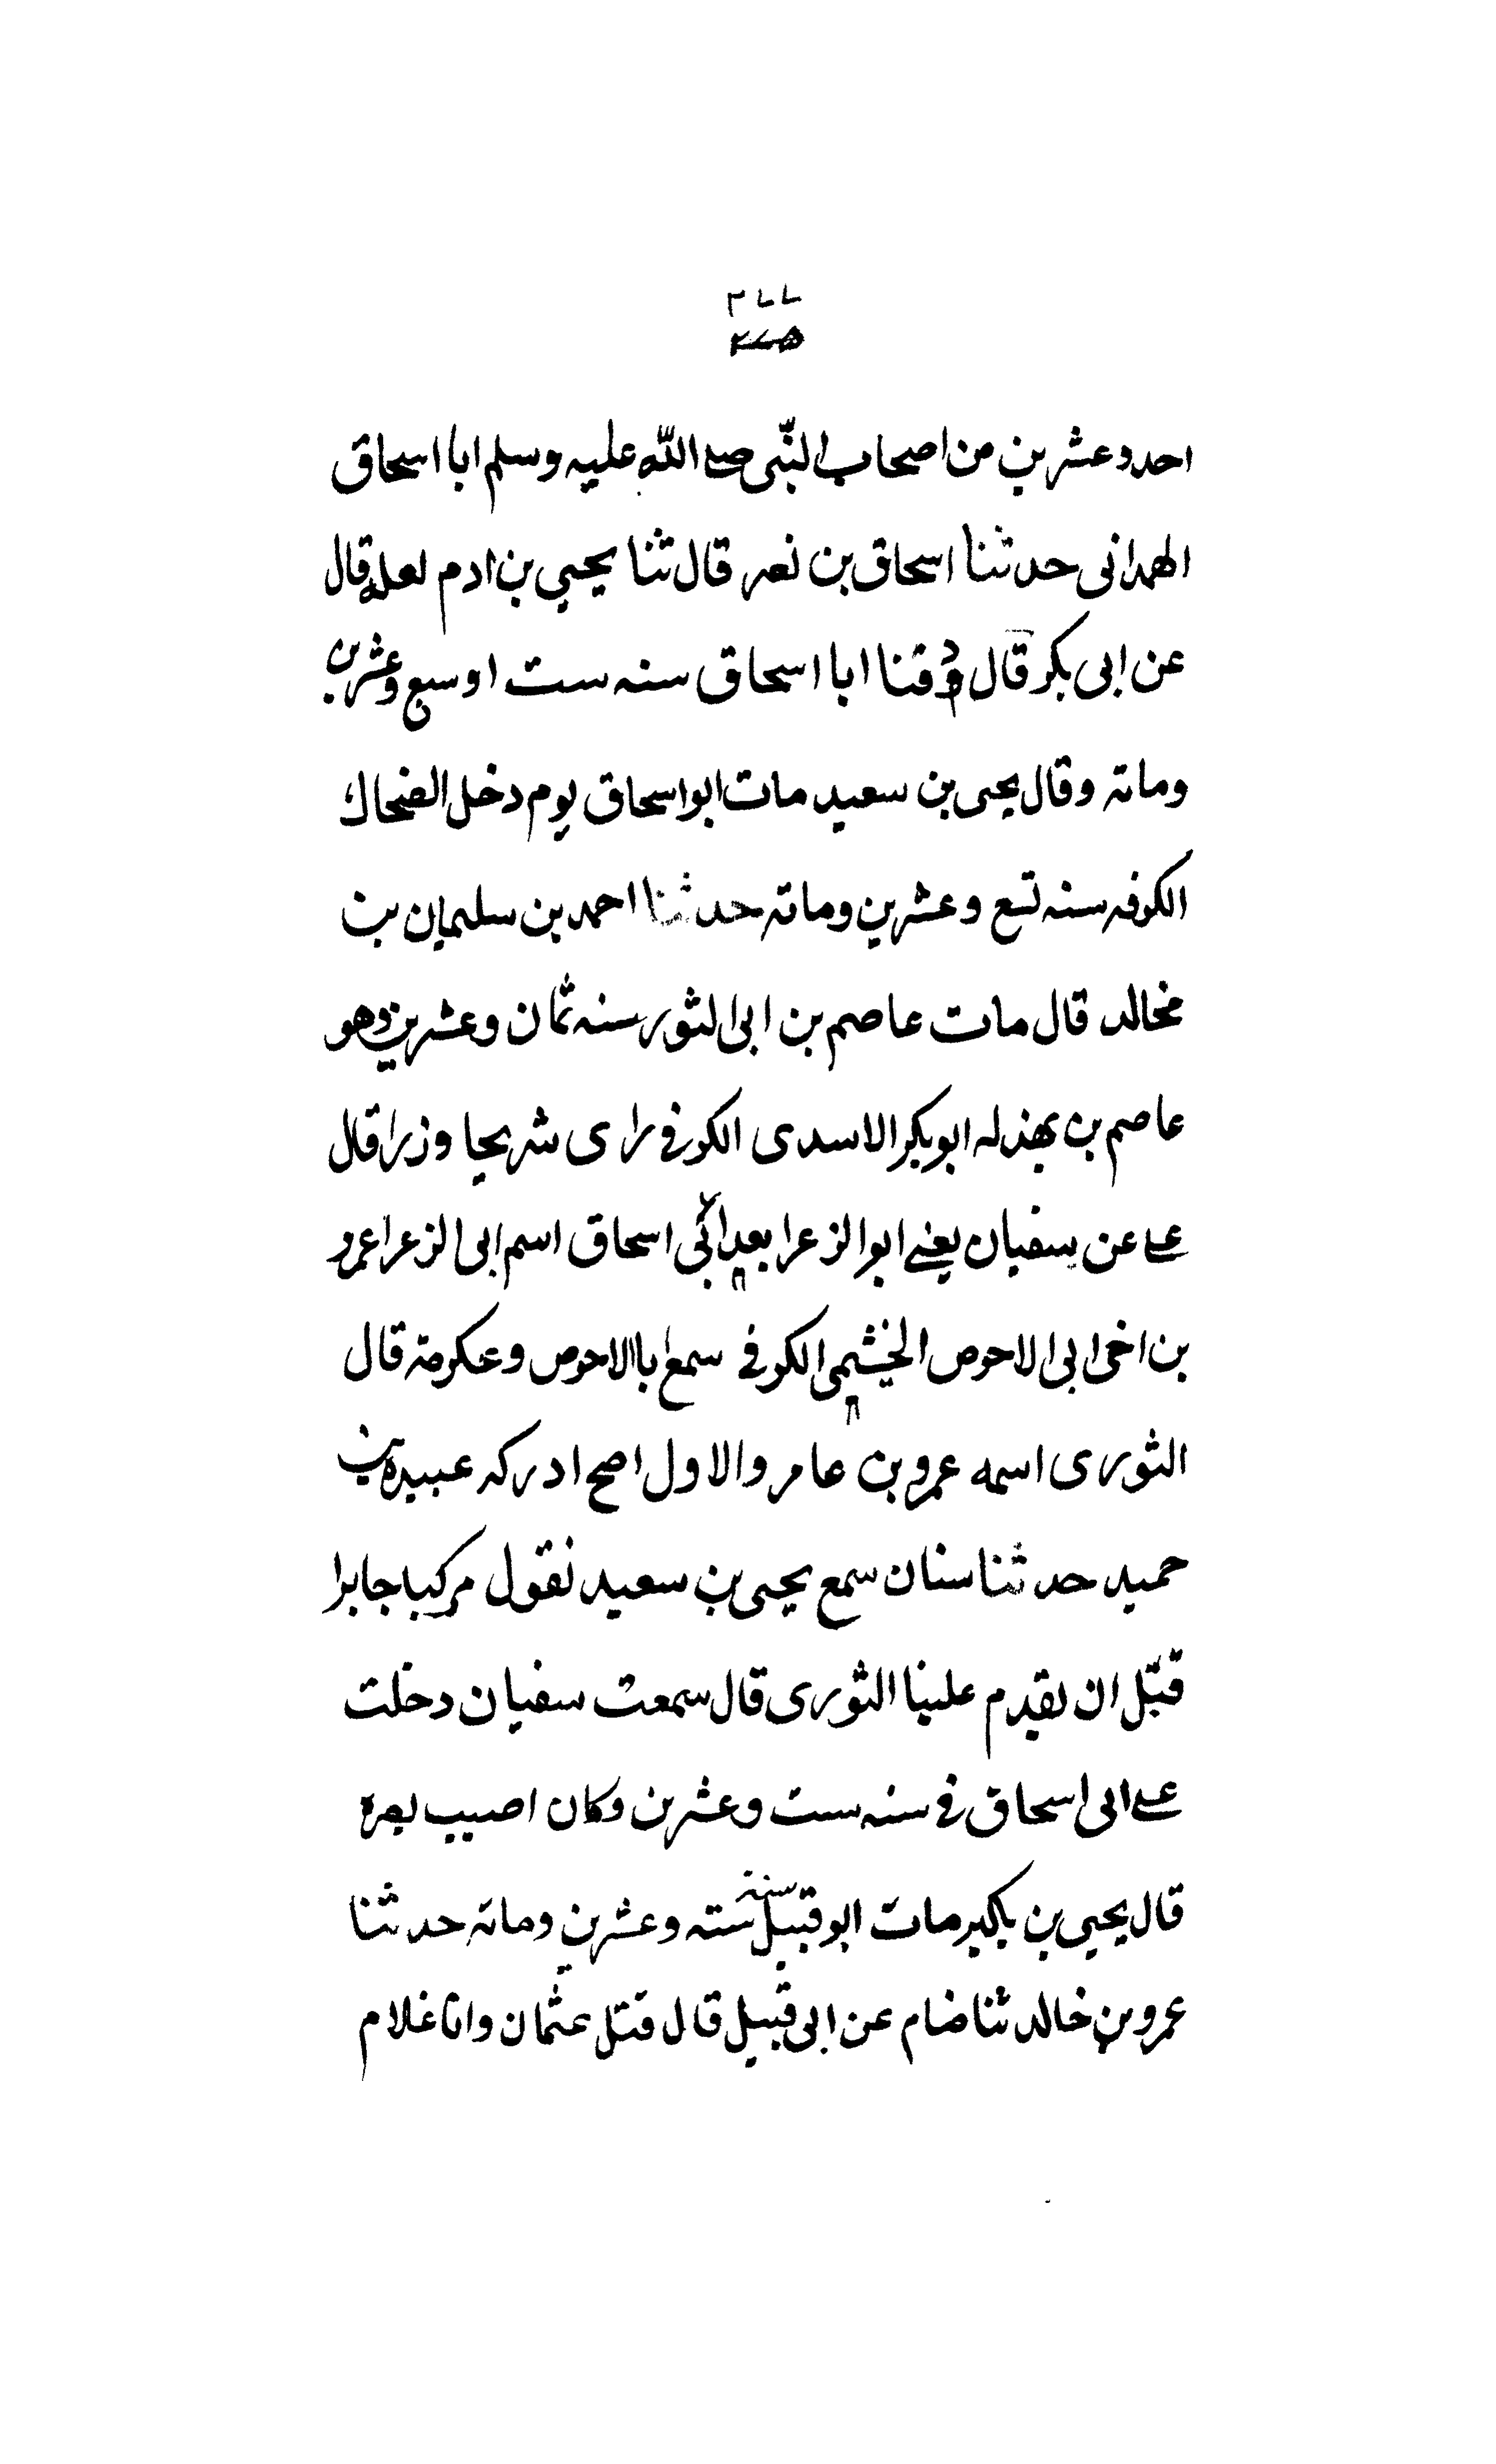 احد وعشرين من اصحاب النبى صلے الله عليه وسلم ابا اسحاق
الهمدانى حدثنا اسحاق بن نصر قال ثنا يحيى بن ادم لعله قال
عن ابى بكر قال دفنا ابا اسحاق سنه ست او سبع وعشرين
ومائة وقال يحيى بن سعيد مات ابو اسحاق يوم دخل الضحاك
الكوفه سنه تسع وعشرين ومائة حدثنا احمد بن سليمان بن
مخالد قال مات عاصم بن ابى الثور سنه ثمان وعشرين وهو
عاصم بن بهذله ابو بكر الاسدى الكوفى راى شريحا وزرا قال
علے عن سفيان يعنے ابو الزعرا بعد ابى اسحاق اسم ابى الزعرا عمرو
بن اخى ابى الاحوص الخشيمى الكوفى سمع ابا الاحوص وعكرمة قال
الثورى اسمه عمرو بن عامر والاول اصح ادركه عبيدة بن
حميد حدثنا سنان سمع يحيى بن سعيد نقول جابرا
قبل ان يقدم علينا الثورى قال سمعت سفيان دخلت
علے ابى اسحاق فى سنه ست وعشرين وكان اصيب بصره
قال يحيى بن بكير مات ابو قبيل سنة سته وعشرين ومائة حدثنا
عمرو بن خالد ثنا ضام عن ابى قبيل قال قتل عثمان وانا غلام